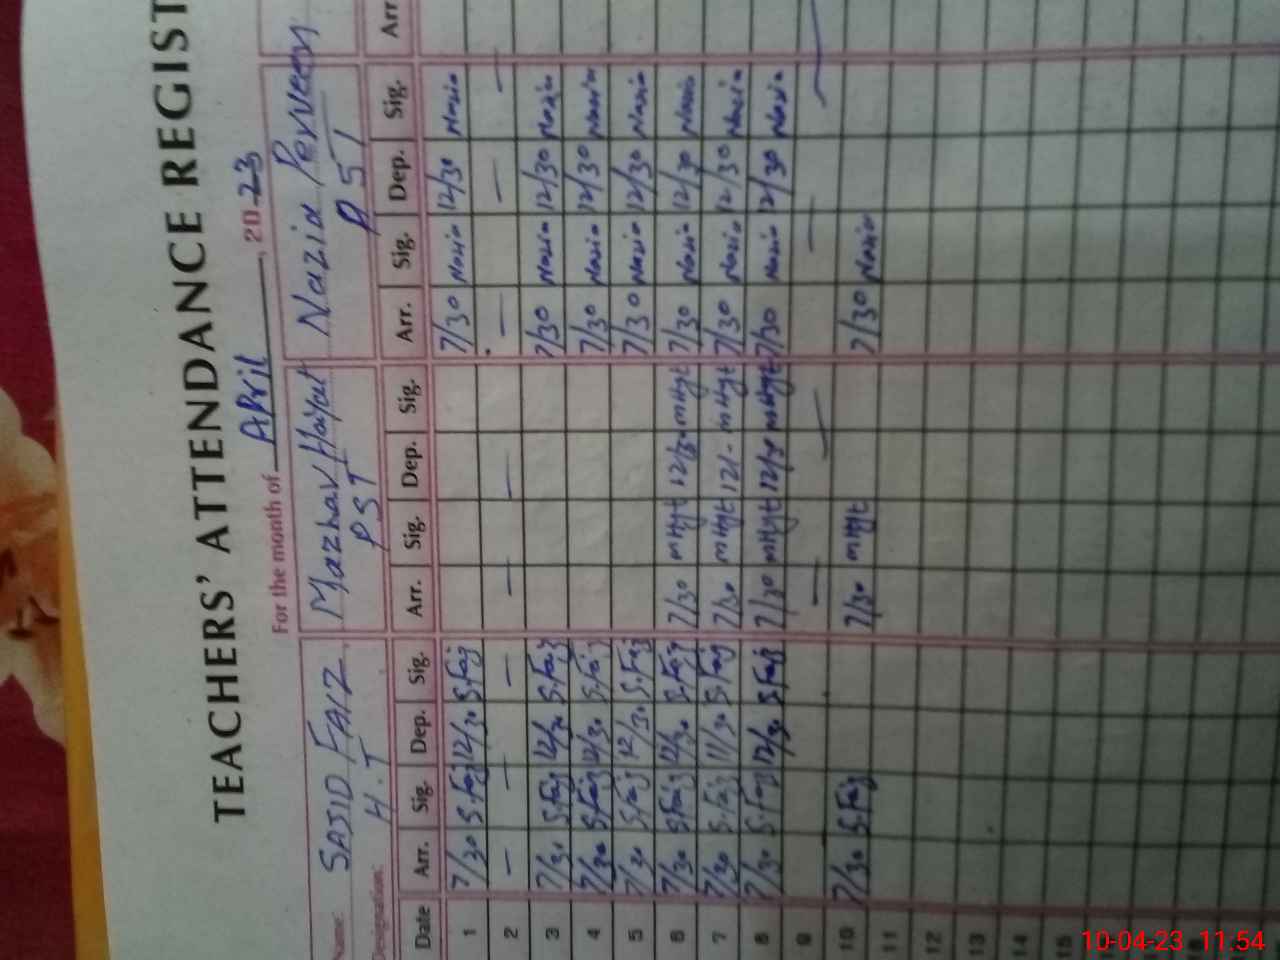 TEACHERS' ATTENDANCE REGIST
For the month of April, 2023
Name: SAJID FAIZ Mazhar Hayat Nazia Perveen
Designation: H.T PST PST
Date Arr. Sig. Dep. Sig. Arr. Sig. Dep. Sig. Arr. Sig. Dep. Sig. Arr
1 7/30 S.Faiz 12/30 S.Faiz 7/30 Nazia 12/30 Nazia
2 — — — — — — — —
3 7/30 S.Faiz 12/30 S.Faiz 7/30 Nazia 12/30 Nazia
4 7/30 S.Faiz 12/30 S.Faiz 7/30 Nazia 12/30 Nazia
5 7/30 S.Faiz 12/30 S.Faiz 7/30 Nazia 12/30 Nazia
6 7/30 S.Faiz 12/30 S.Faiz 7/30 mHyt 12/30 mHyt 7/30 Nazia 12/30 Nazia
7 7/30 S.Faiz 11/30 S.Faiz 7/30 mHyt 12/- mHyt 7/30 Nazia 12/30 Nazia
8 7/30 S.Faiz 12/30 S.Faiz 7/30 mHyt 12/30 mHyt 7/30 Nazia 12/30 Nazia
9 — — —
10 7/30 S.Faiz 7/30 mHyt 7/30 Nazia
11
12
13
14
15
16
10-04-23 11:54